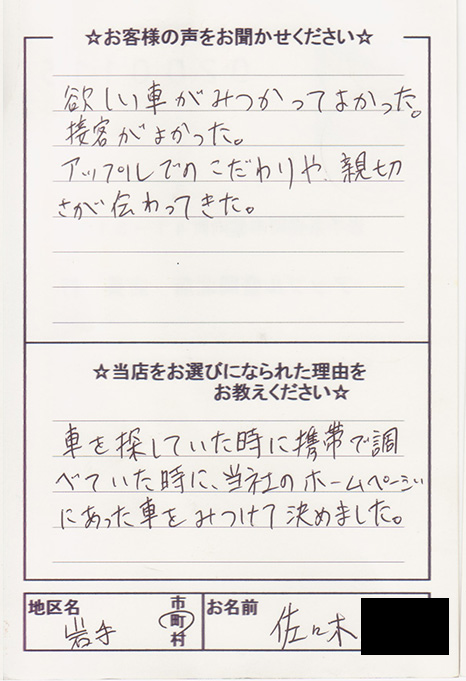 ☆お客様の声をお聞かせください☆
欲しい車がみつかってよかった。
接客がよかった。
アップルでのこだわりや、親切
さが伝わってきた。
☆当店をお選びになられた理由を
お教えください☆
車を探していた時に携帯で調
べていた時に、当社のホームページ
にあった車をみつけて決めました。
地区名 岩手 市町村 お名前 佐々木